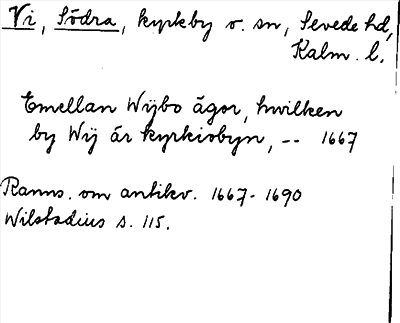 Vi, Södra, kyrkby o. sn, Sevede hd,
Kalm. l.
Emellan Wijbo ägor, hwilken
by Wij är kyrkiobyn, -- 1667
Ranns. om antikv. 1667-1690
Wilstadius s. 115.